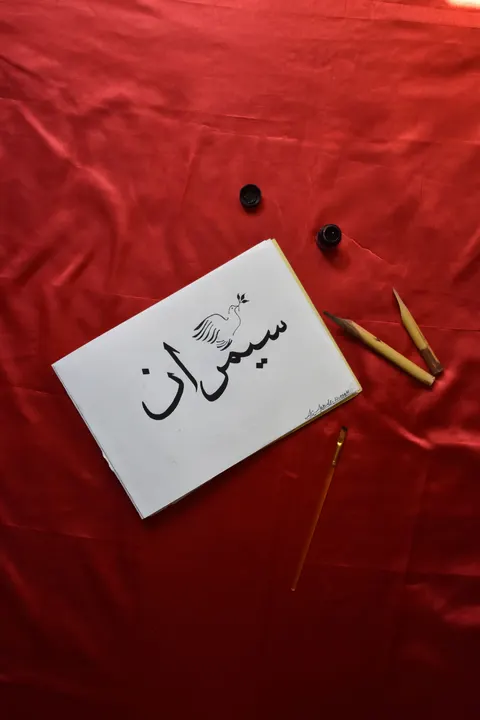 سیمران